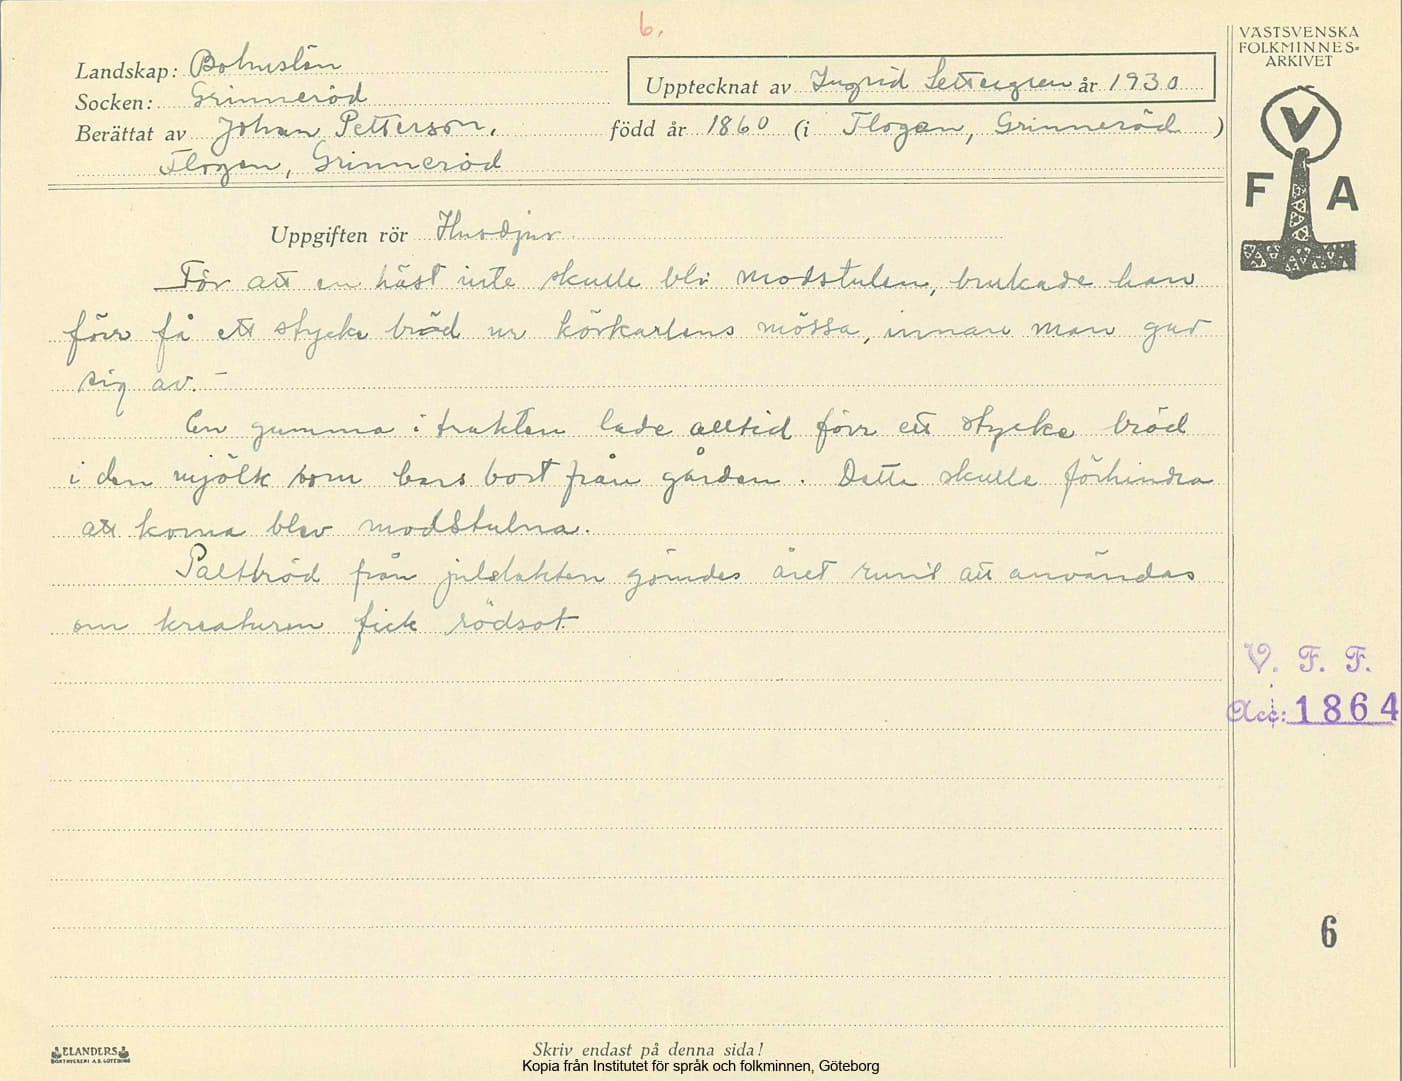 6.
VÄSTSVENSKA
FOLKMINNES-
ARKIVET
Landskap: Bohuslän
Upptecknat av Ingrid Settergren år 1930
Socken: Grinneröd
Berättat av Johan Petterson, född år 1860 (i Flogen, Grinneröd )
Flogen, Grinneröd
V
F A
Uppgiften rör Husdjur
För att en häst inte skulle bli modstulen, brukade han
förr få ett stycke bröd ur körkarlens mössa, innan man gav
sig av. –
En gumma i trakten lade alltid förr ett stycke bröd
i den mjölk som bars bort från gården. Detta skulle förhindra
att korna blev modstulna.
Paltbröd från julslakten gömdes året runt att användas
om kreaturen fick rödsot.
V. F. F.
Acc: 1864
6
ELANDERS
BOKTRYCKERI A.B. GÖTEBORG
Skriv endast på denna sida!
Kopia från Institutet för språk och folkminnen, Göteborg